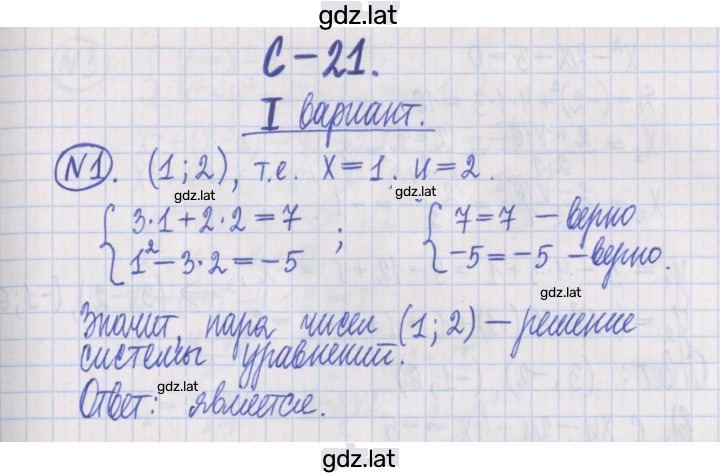 gdz.lat
С-21.
I вариант.
№1. (1; 2), т.е. x=1; y=2.
gdz.lat
gdz.lat
{ 3·1+2·2=7 ; { 7=7 – верно
{ 1²-3·2=-5 { -5=-5 – верно.
gdz.lat
Значит, пара чисел (1; 2) – решение
системы уравнений.
gdz.lat
Ответ: является.
gdz.lat